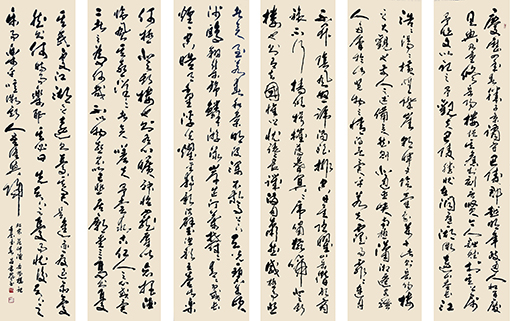 慶曆四年春滕子京謫守巴陵郡越明年政通人和百廢
具興乃重修岳陽樓增其舊制刻唐賢今人詩賦於其上屬
予作文以記之予觀夫巴陵勝狀在洞庭一湖銜遠山吞長江
浩浩湯湯橫無際涯朝暉夕陰氣象萬千此則岳陽樓
之大觀也前人之述備矣然則北通巫峽南極瀟湘遷客騷
人多會於此覽物之情得無異乎若夫霪雨霏霏連月
不開陰風怒號濁浪排空日星隱耀山岳潛形商
旅不行檣傾楫摧薄暮冥冥虎嘯猿啼登斯
樓也則有去國懷鄉憂讒畏譏滿目蕭然感極而悲
者矣至若春和景明波瀾不驚上下天光一碧萬頃
沙鷗翔集錦鱗游泳岸芷汀蘭郁郁青青而或長
煙一空皓月千里浮光躍金靜影沉璧漁歌互答此樂
何極登斯樓也則有心曠神怡寵辱偕忘把酒
臨風其喜洋洋者矣嗟夫予嘗求古仁人之心或異
二者之為何哉不以物喜不以己悲居廟堂之高則憂
其民處江湖之遠則憂其君是進亦憂退亦憂
然則何時而樂耶其必曰先天下之憂而憂後天下之
樂而樂乎噫微斯人吾誰與歸
范仲淹岳陽樓記